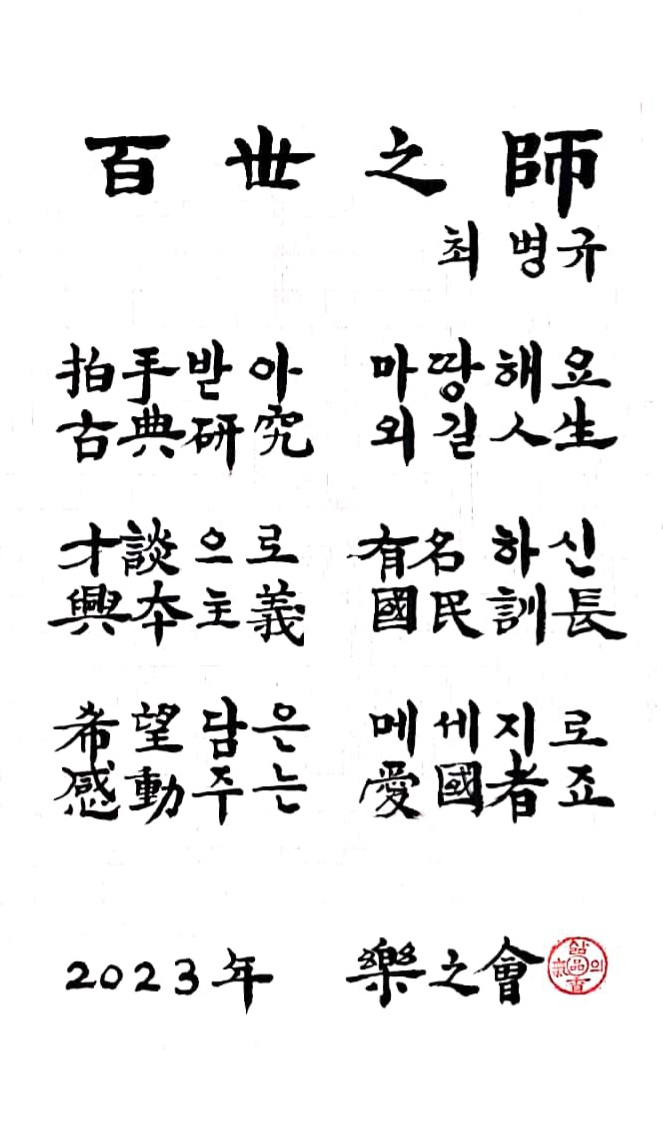 百世之師
최병규
拍手받아 마땅해요
古典研究 외길人生
才談으로 有名하신
興本主義 國民訓長
希望담은 메세지로
感動주는 愛國者죠
2023年 樂之會